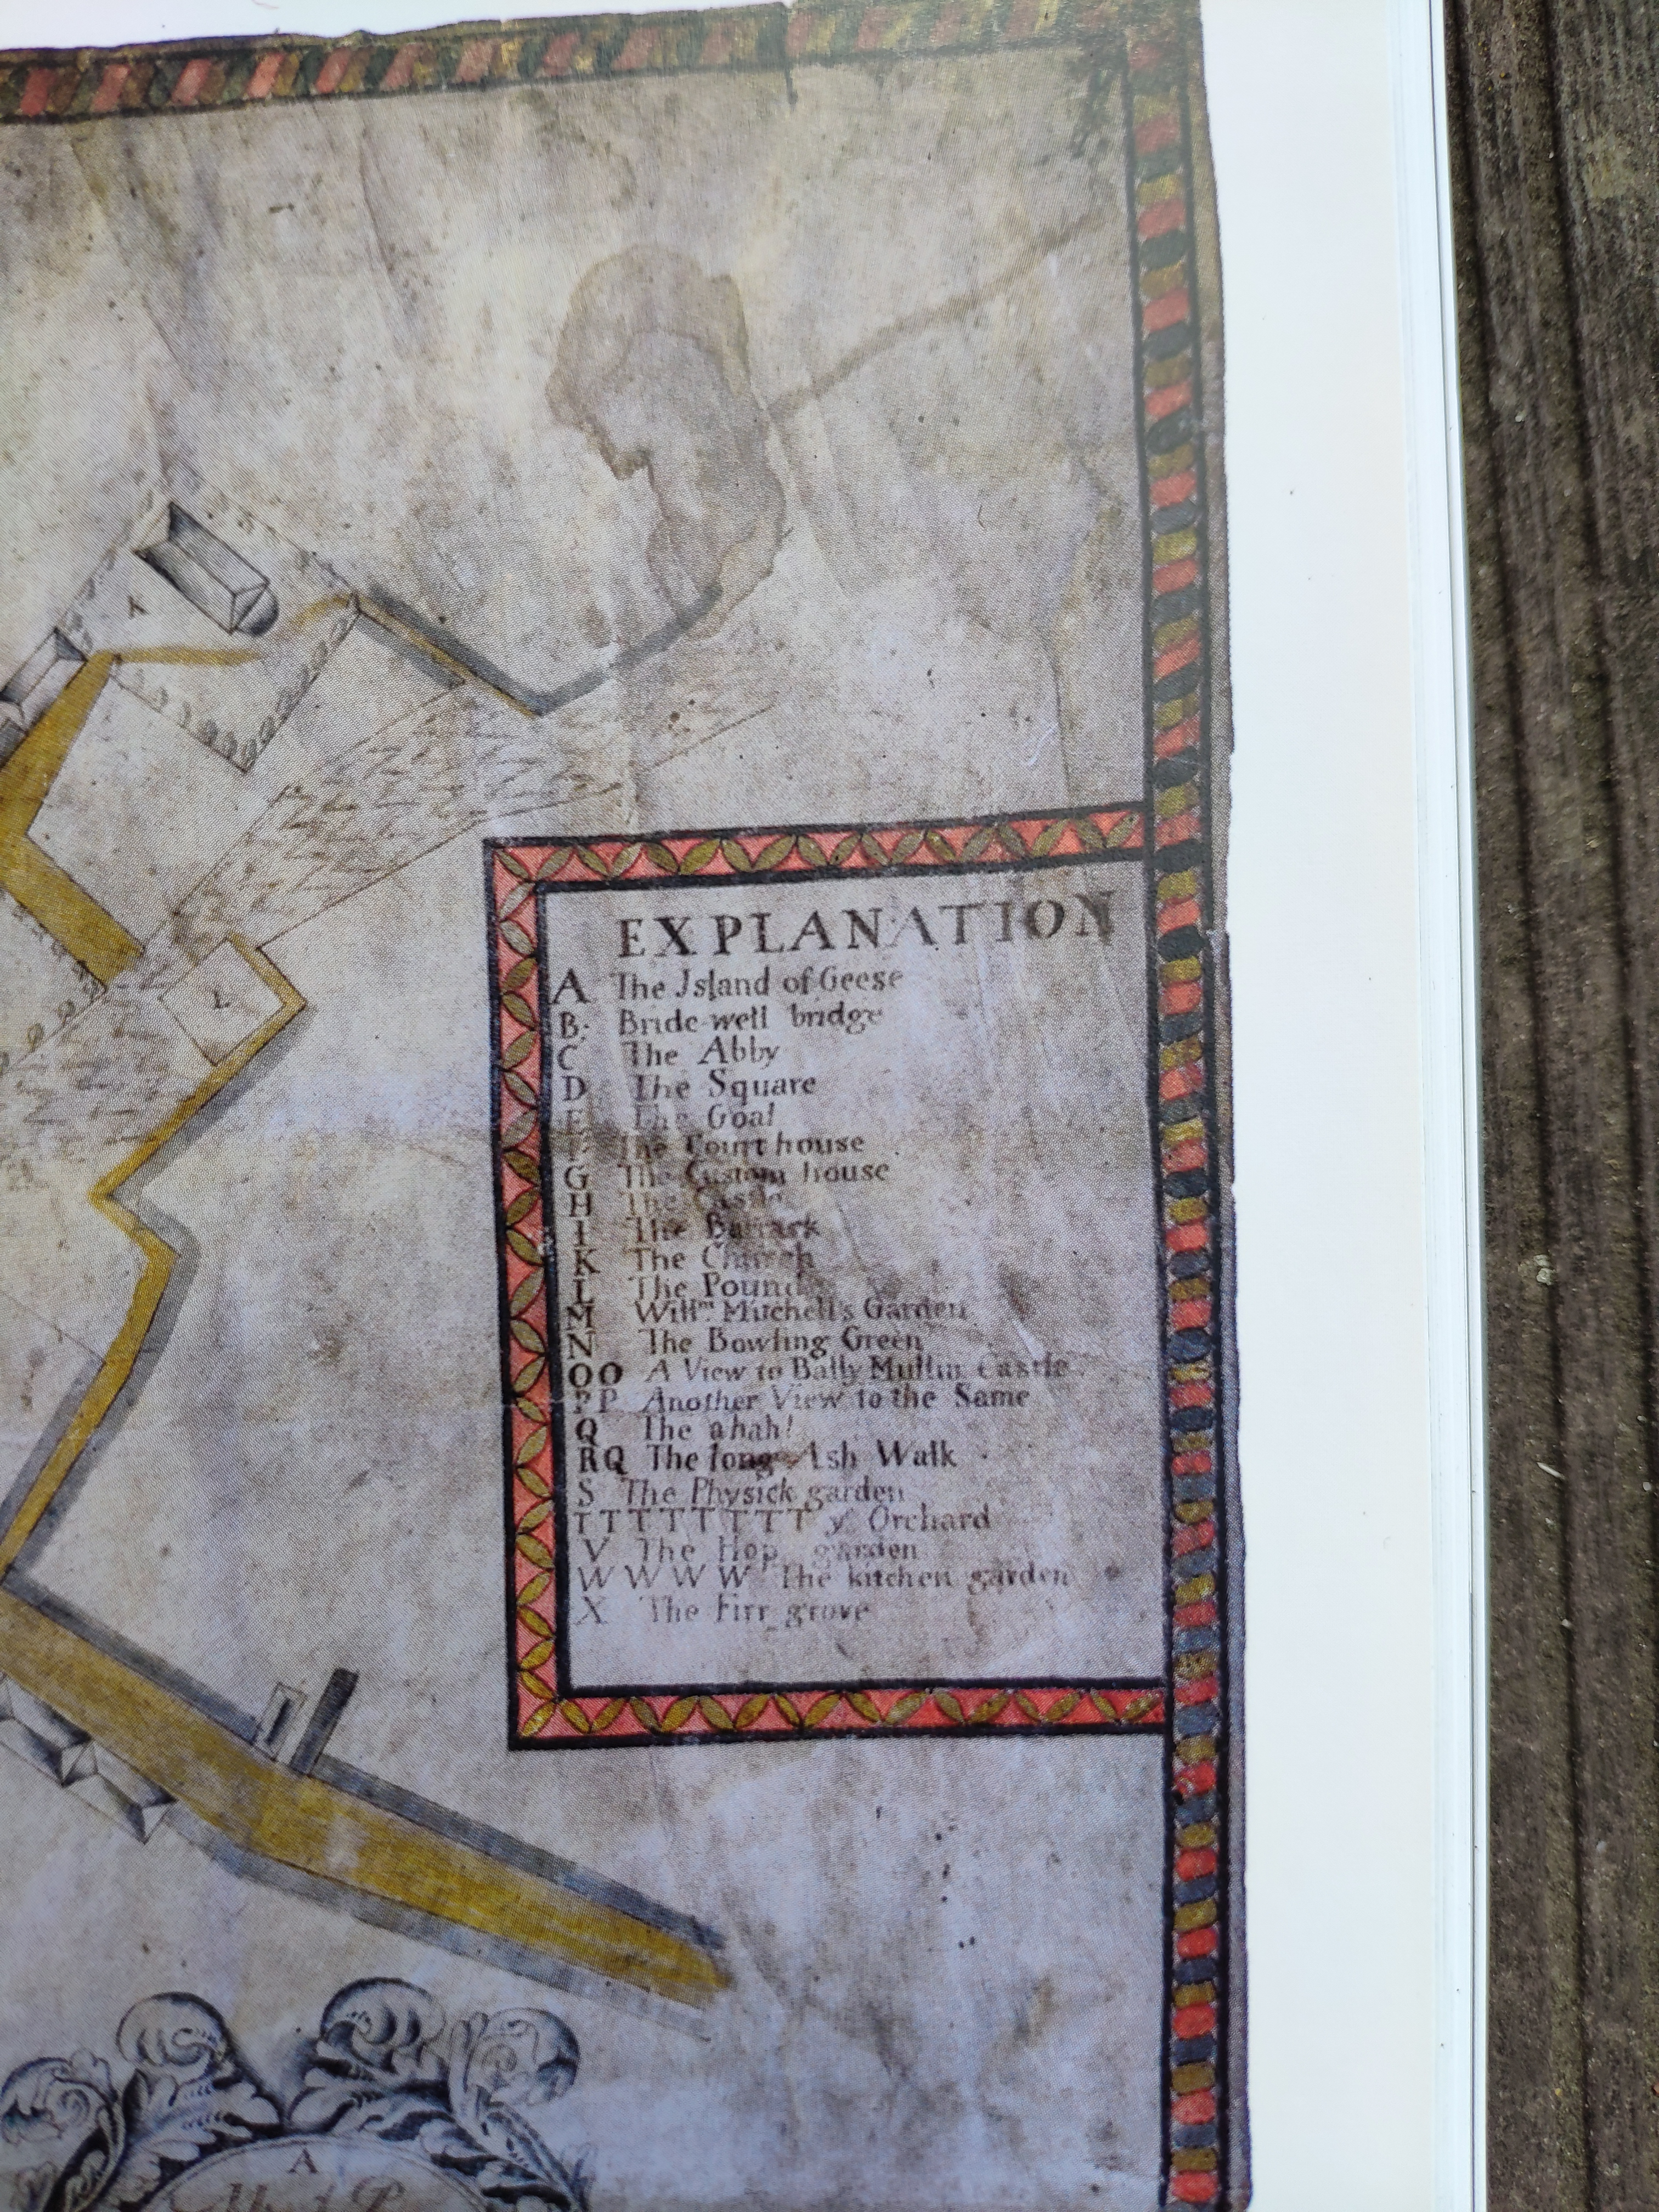 K
L
EXPLANATION
A The Island of Geese
B. Bride-well bridge
C The Abby
D The Square
E The Goal
F The Court house
G The Custom house
H The Castle
I The Barrack
K The Church
L The Pound
M Willm. Mitchell's Garden
N The Bowling Green
OO A View to Bally Mullin Castle
PP Another View to the Same
Q The ahah!
RQ The long Ash Walk
S The Physick garden
TTTTTTTT ye Orchard
V The Hop garden
WWWW The kitchen garden
X The Firr grove
A